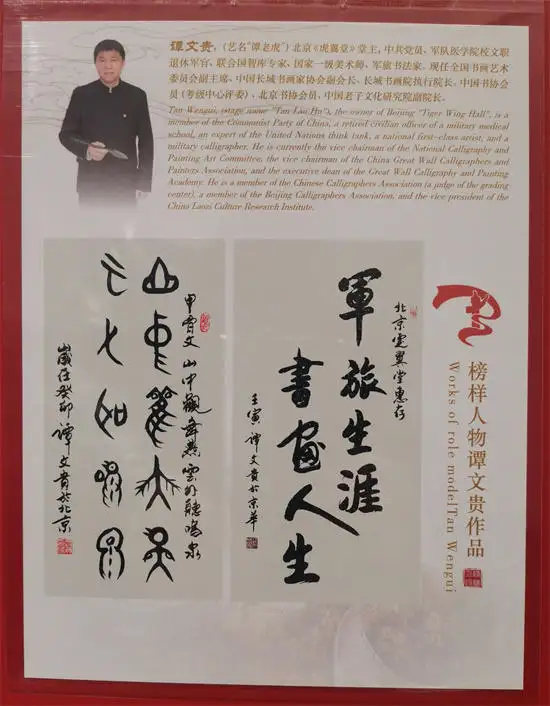 谭文贵,(艺名“谭老虎”)北京《虎翼堂》堂主,中共党员、军队医学院校文职
退休军官、联合国智库专家、国家一级美术师、军旅书法家。现任全国书画艺术
委员会副主席、中国长城书画家协会副会长、长城书画院执行院长,中国书协会
员(考级中心评委)、北京书协会员、中国老子文化研究院副院长。
Tan Wengui, (stage name "Tan Lao Hu"), the owner of Beijing "Tiger Wing Hall", is a
member of the Communist Party of China, a retired civilian officer of a military medical
school, an expert of the United Nations think tank, a national first-class artist, and a
military calligrapher. He is currently the vice chairman of the National Calligraphy and
Painting Art Committee, the vice chairman of the China Great Wall Calligraphers and
Painters Association, and the executive dean of the Great Wall Calligraphy and Painting
Academy. He is a member of the Chinese Calligraphers Association (a judge of the grading
center), a member of the Beijing Calligraphers Association, and the vice president of the
China Laozi Culture Research Institute.
北京虎翼堂惠存
軍旅生涯
書画人生
壬寅 谭文贵於京华
甲骨文 山中觀舞燕 雲外聽鳴泉
歲在癸卯 谭文貴於北京
榜样人物谭文贵作品
Works of role modelTan Wengui